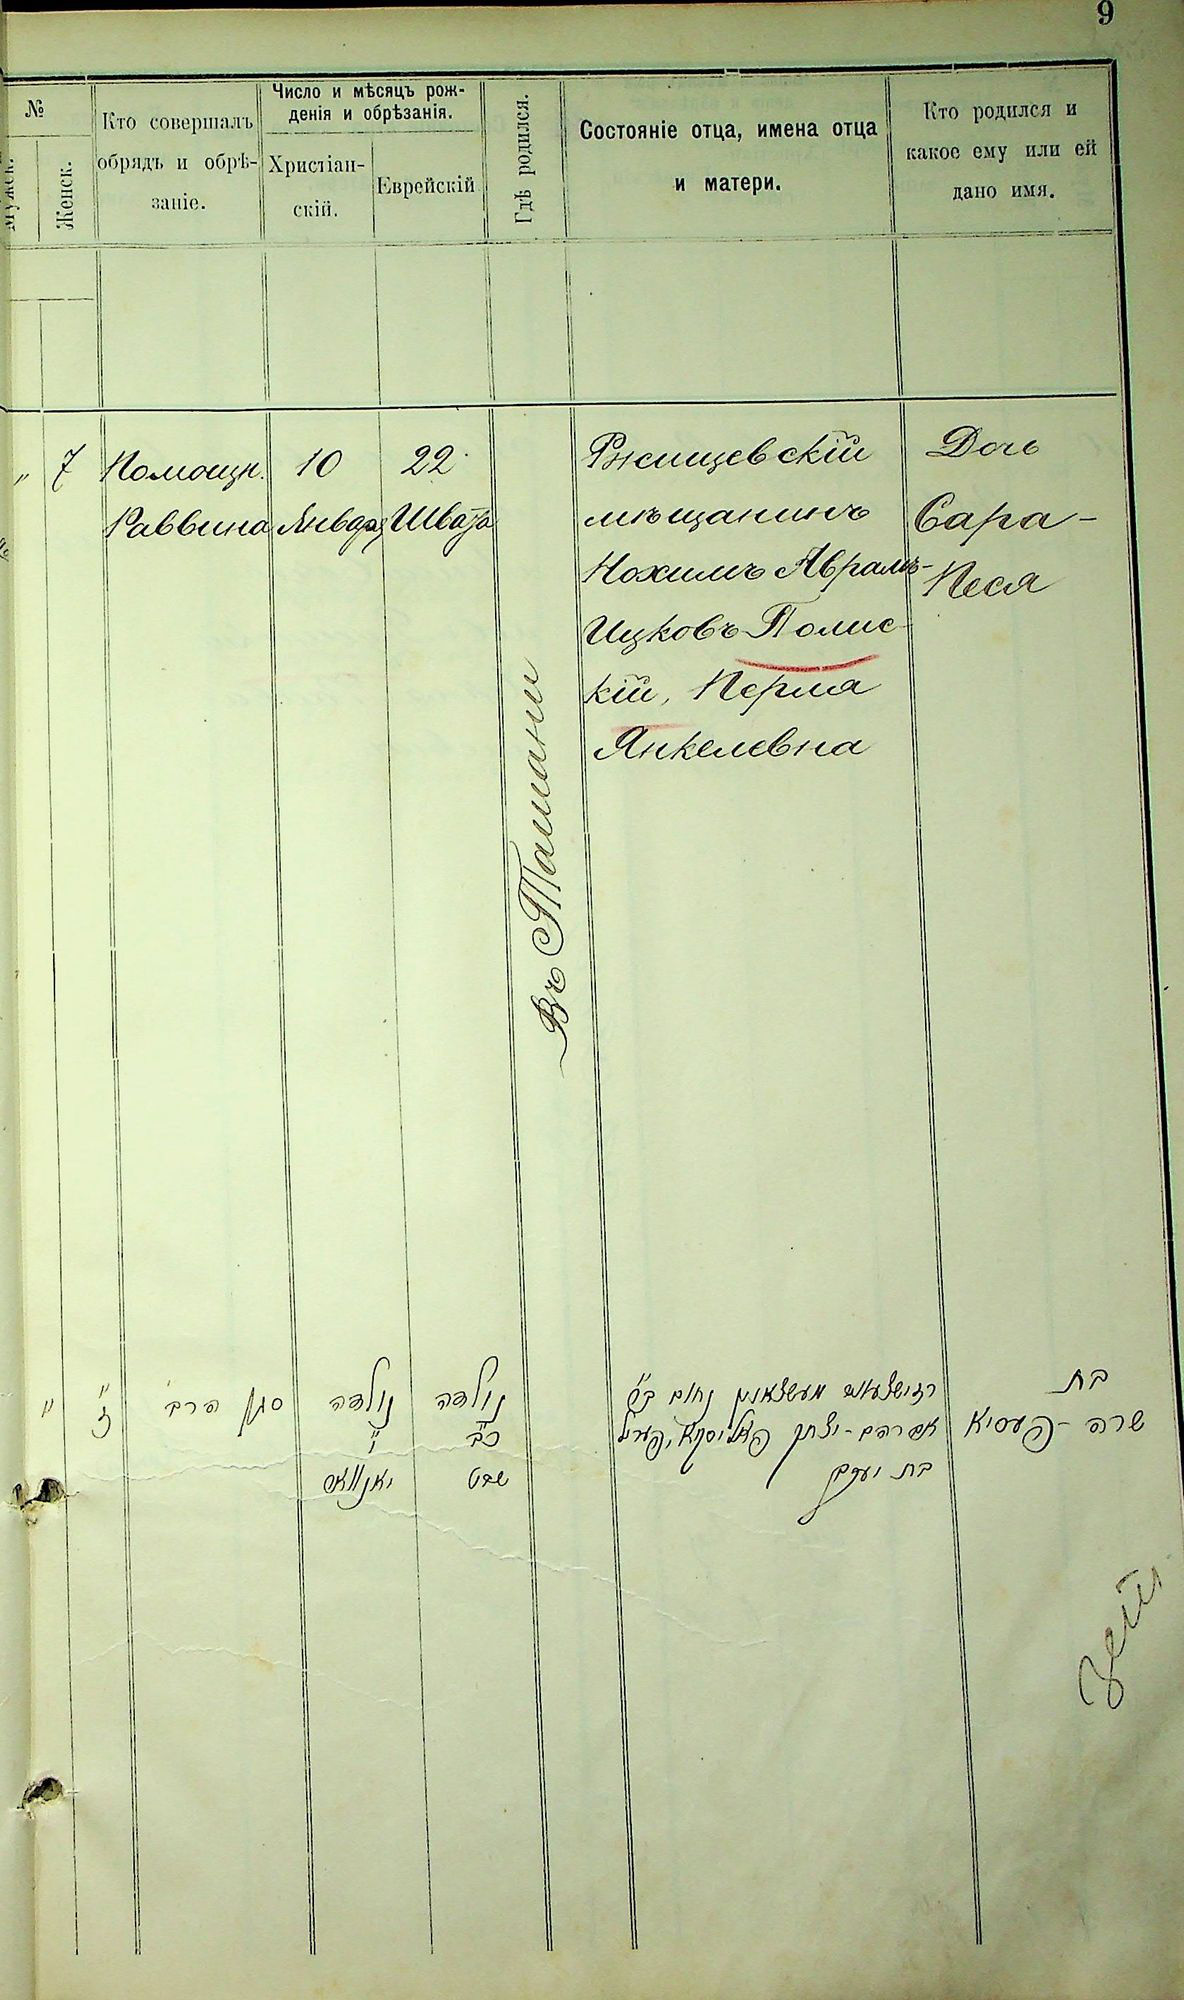 9
№
Мужск.
Женск.
Кто совершалъ
обрядъ и обрѣ-
заніе.
Число и мѣсяцъ рож-
денія и обрѣзанія.
Христіан-
скій.
Еврейскій
Гдѣ родился.
Состояніе отца, имена отца
и матери.
Кто родился и
какое ему или ей
дано имя.
" 7
Помощн.
Раввина
10
Января
22
Швата
Въ Тальномъ
Ржищевскій
мѣщанинъ
Нохимъ Аврамъ-
Ицковъ Полис-
кій, Перля
Янкелевна
Дочь
Сара-
Песя
" ז"
סגן הרב
נולדה
י"
יאנוואר
נולדה
כ"ב
שבט
מעשצאנין נחום ב"ר
אברהם-יצחק פאליסקי, פערל
בת יעקב
בת
שרה-פעסיא